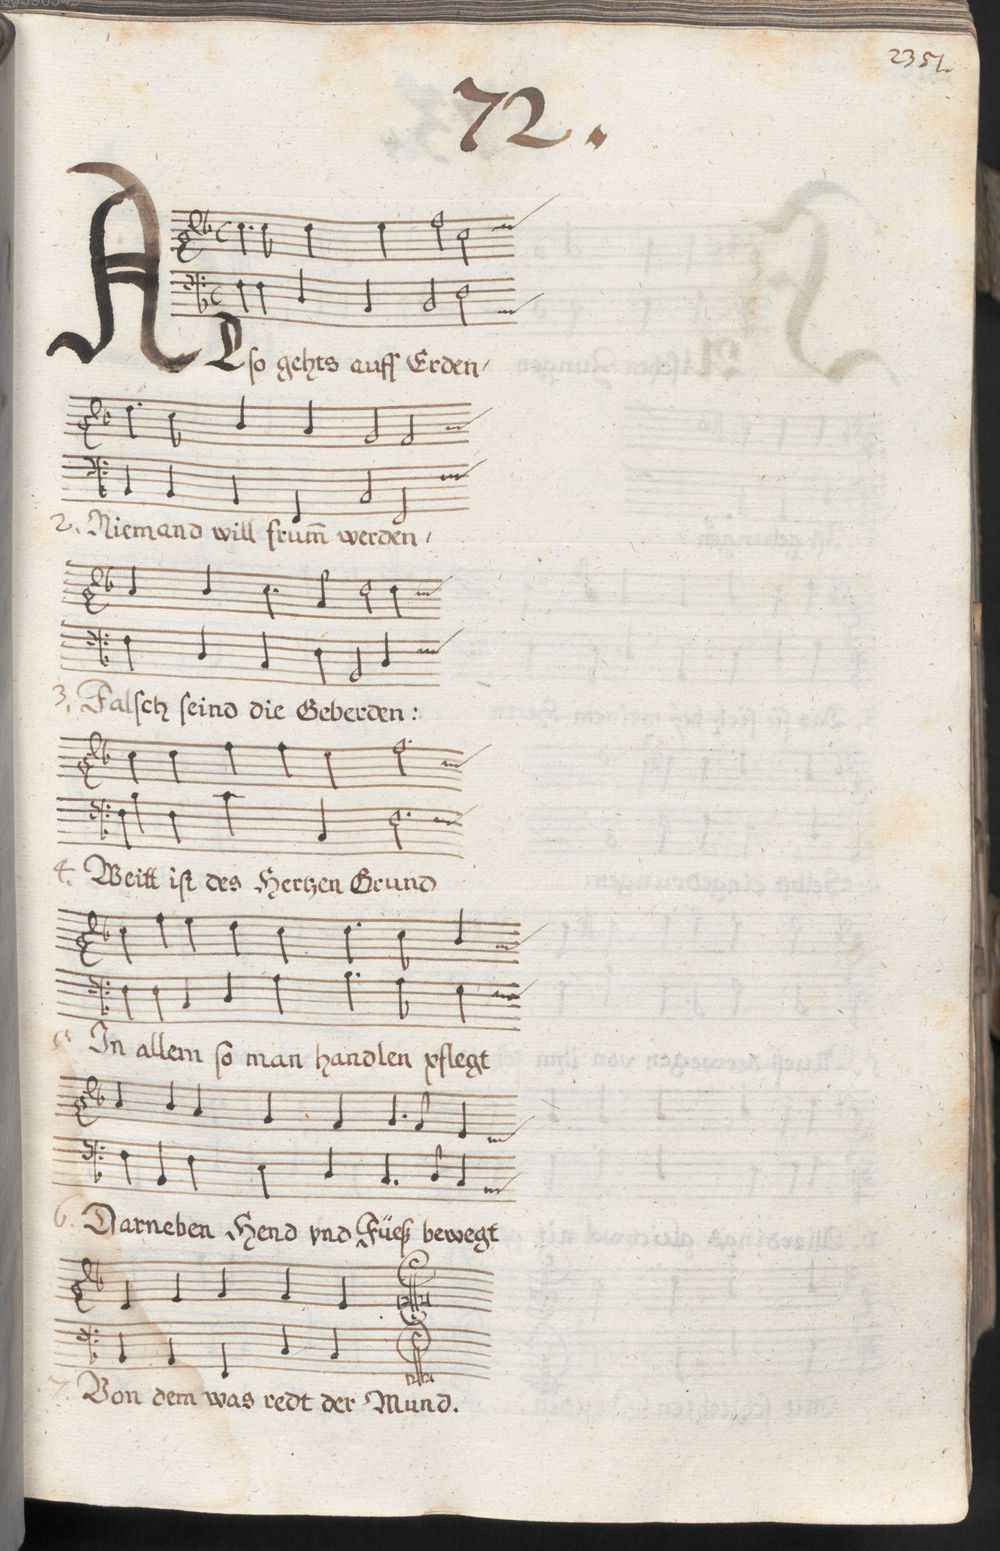 2351.
72.
Also gehts auff Erden/
2. Niemand will frum̄ werden/
3. Falsch seind die Geberden:
4. Weitt ist des Hertzen Grund
5. In allem so man handlen pflegt
6. Darneben Hend vnd Füeß bewegt
7. Von dem was redt der Mund.